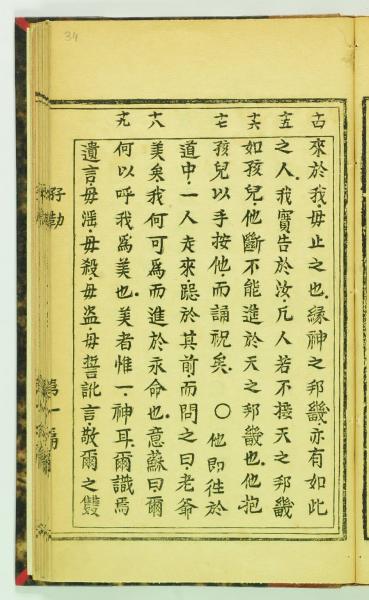 34
十四 十五 十六 十七 十八 十九
來於我毋止之也緣神之邦畿亦有如此
之人我實告於汝凡人若不接天之邦畿
如孩兒他斷不能進於天之邦畿也他抱
孩兒以手按他而誦祝矣〇他即徃於
道中一人走來跽於其前而問之曰老爺
美矣我何可爲而進於永命也意蘇曰爾
何以呼我爲美也美者惟一神耳爾識焉
遺言毋淫毋殺毋盜毋誓訛言敬爾之雙